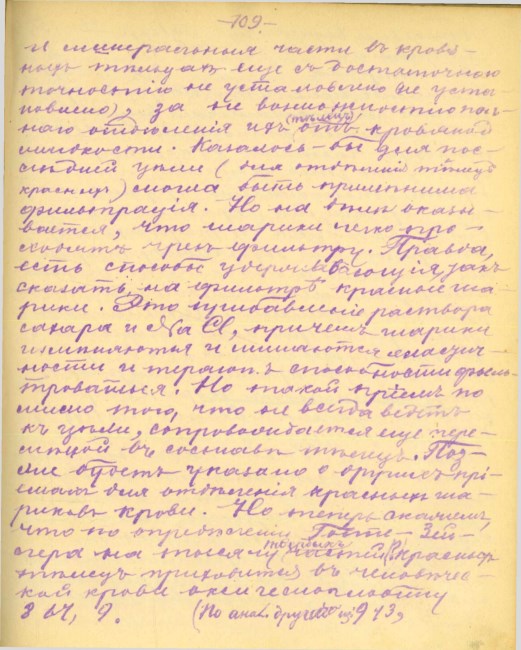 -109.-
и минеральныя части въ кровя-
ныхъ тѣльцахъ еще съ достаточною
точностію не установлено (не уста-
новлено), за не возможностію пол-
наго отдѣленія ихъ (тѣлецъ) отъ кровяной
жидкости. Казалось-бы для пос-
лѣдней цѣли (для отдѣленія тѣлецъ
красныхъ) могла быть примѣнима
фильтрація. Но на дѣлѣ оказы-
вается, что шарики легко про-
ходятъ чрезъ фильтру. Правда,
есть способы удерживающія, такъ
сказать, на фильтрѣ красные ша-
рики. Это прибавленіе раствора
сахара и NaCl, причемъ шарики
измѣняются и лишаются эластич-
ности и теряютъ способности филь-
троваться. Но такой пріемъ по-
мимо того, что не всегда ведетъ
къ цѣли, сопровождается еще пере-
мѣной въ составѣ тѣлецъ. Поз-
же будетъ указано о другихъ прі-
емахъ для отдѣленія красныхъ ша-
риковъ крови. Но теперь скажемъ,
что по опредѣленію Готе-Зей-
лера на тысячу частей красныхъ
тѣлецъ приходится въ человѣчес-
кой крови оксигемоглобину
867,9. (По анал. другой 943,